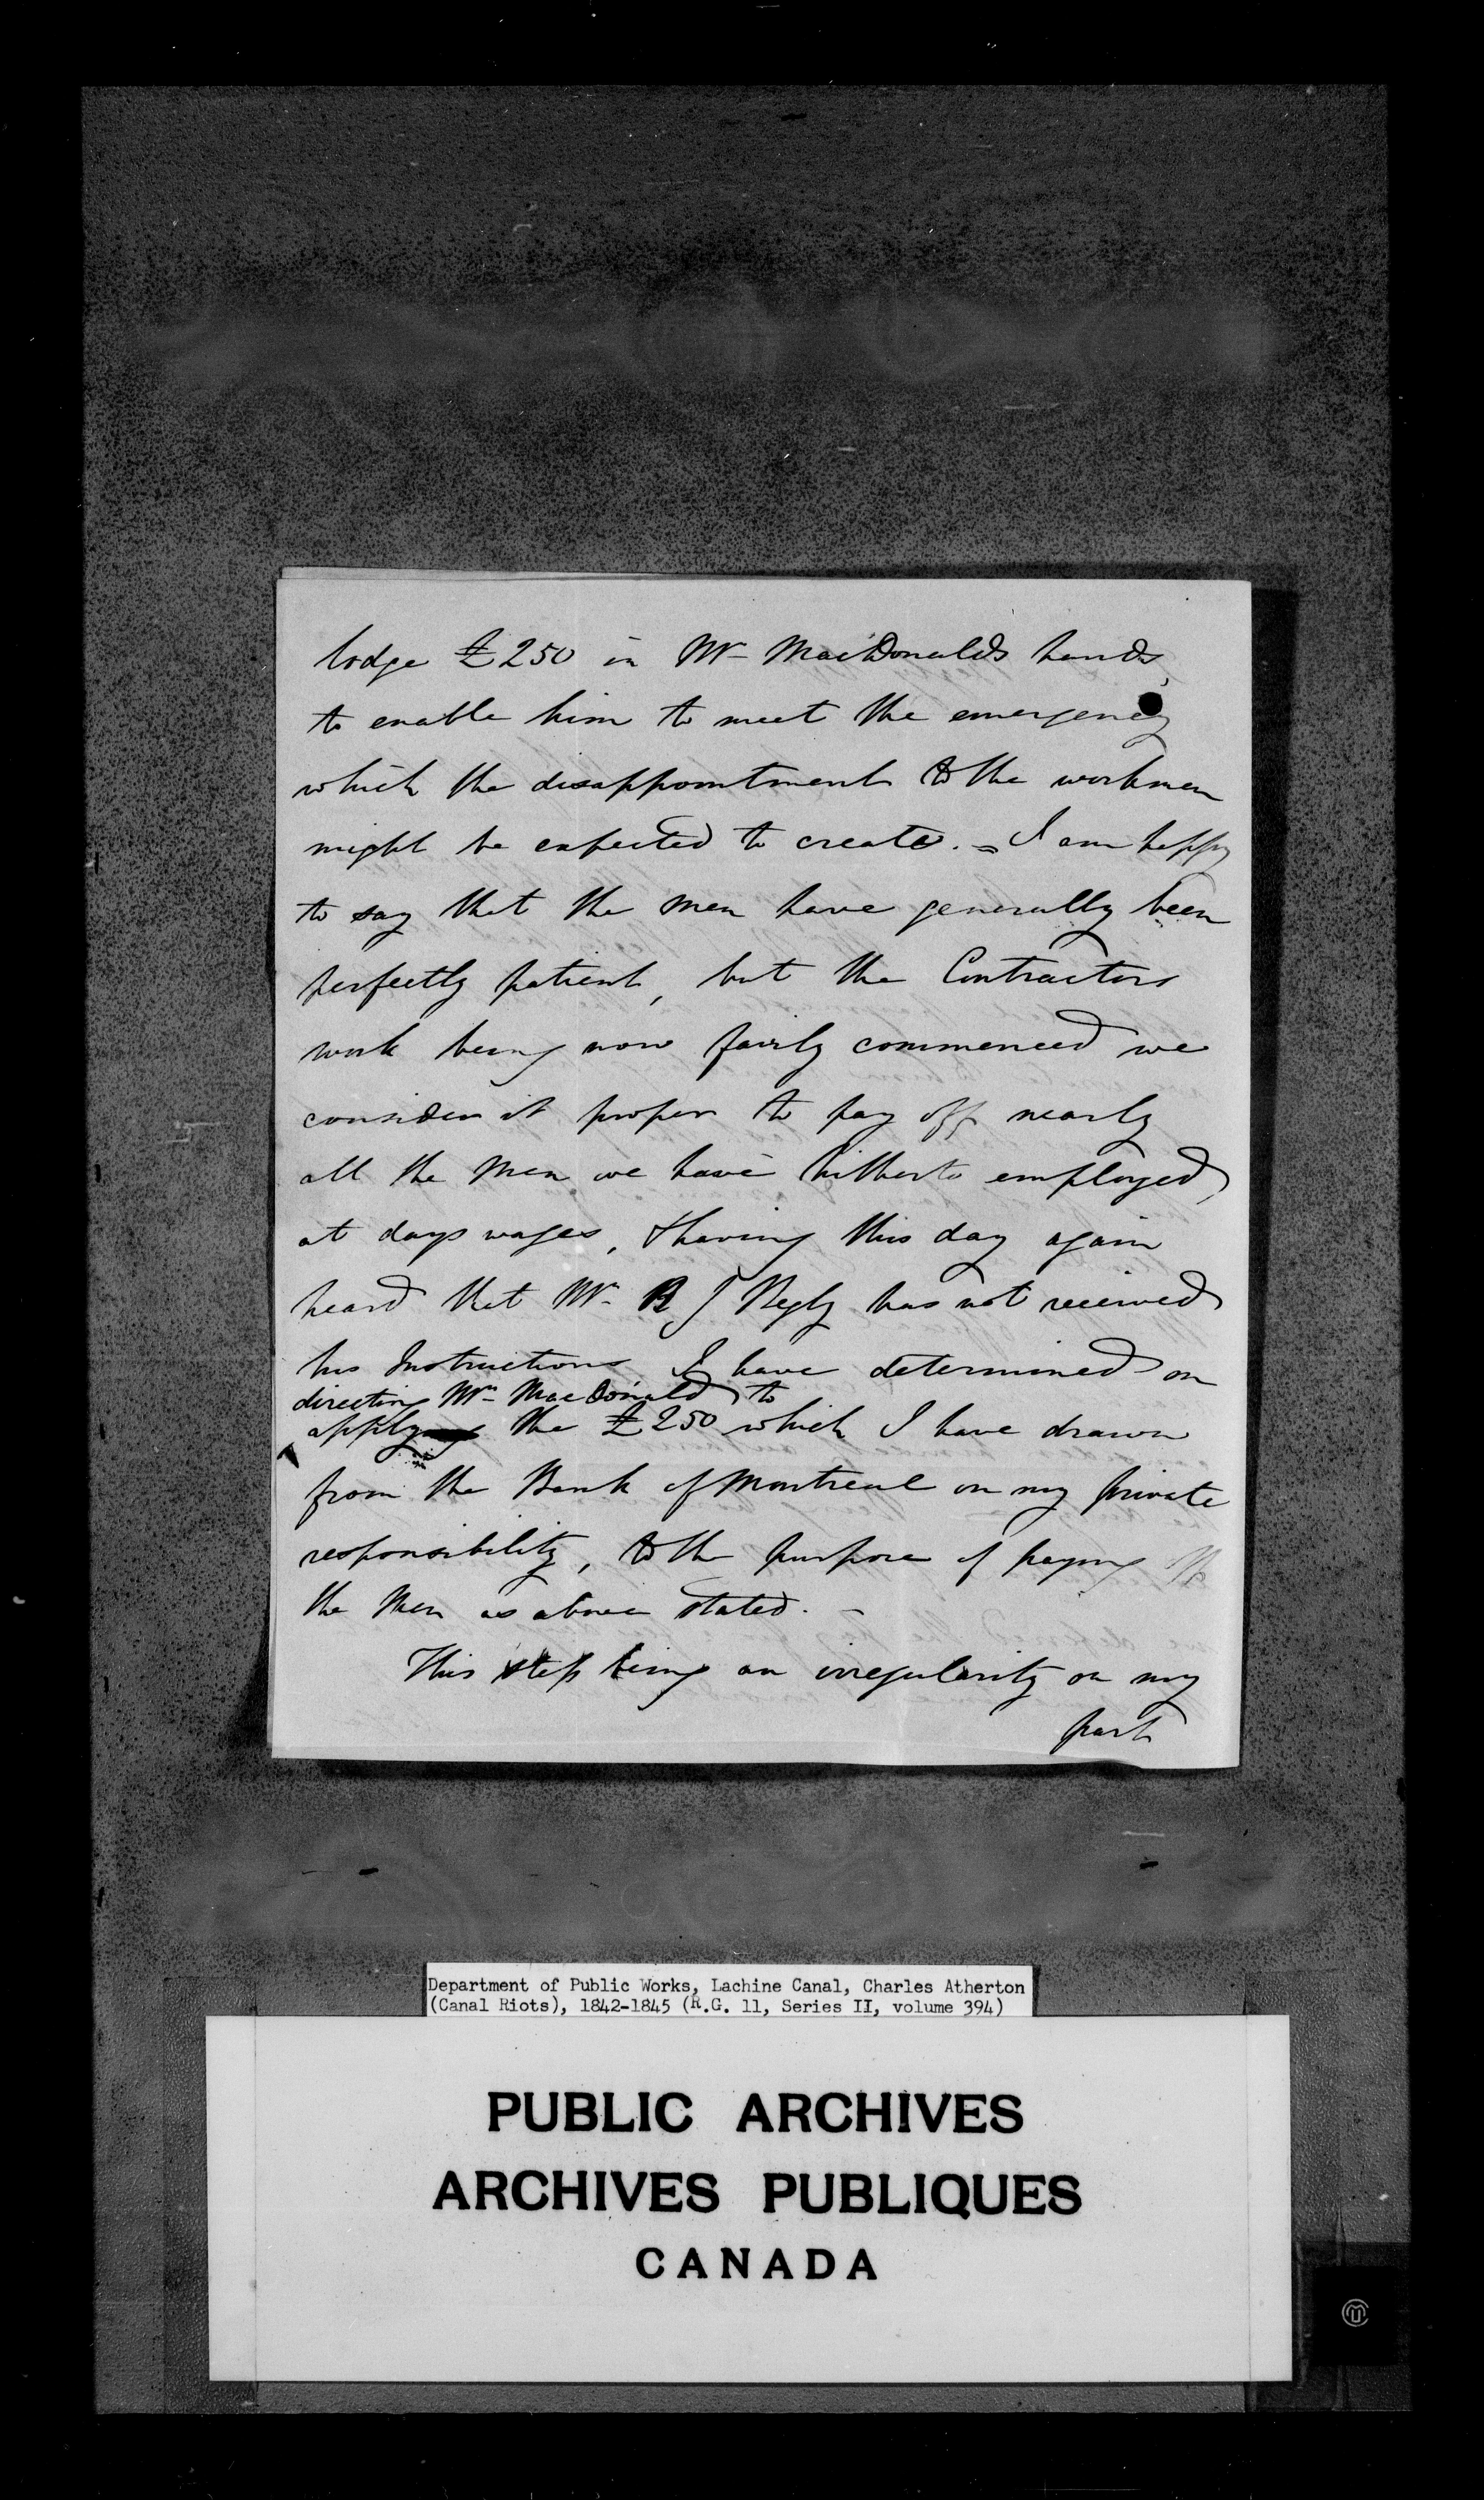 lodge £250 in Mr MacDonalds hands,
to enable him to meet the emergency
which the disappointment to the workmen
might be expected to create. = I am happy
to say that the men have generally been
perfectly patient, but the Contractors
work being now fairly commenced we
consider it proper to pay off nearly
all the Men we have hitherto employed,
at days wages, & having this day again
heard that Mr B J Begly has not received
his Instructions I have determined on
directing Mr MacDonald to
apply the £250 which I have drawn
from the Bank of Montreal on my private
responsibility, to the purpose of paying off
the Men as above stated. -
This step being an irregularity on my
part
Department of Public Works, Lachine Canal, Charles Atherton
(Canal Riots), 1842-1845 (R.G. 11, Series II, volume 394)
PUBLIC ARCHIVES
ARCHIVES PUBLIQUES
CANADA